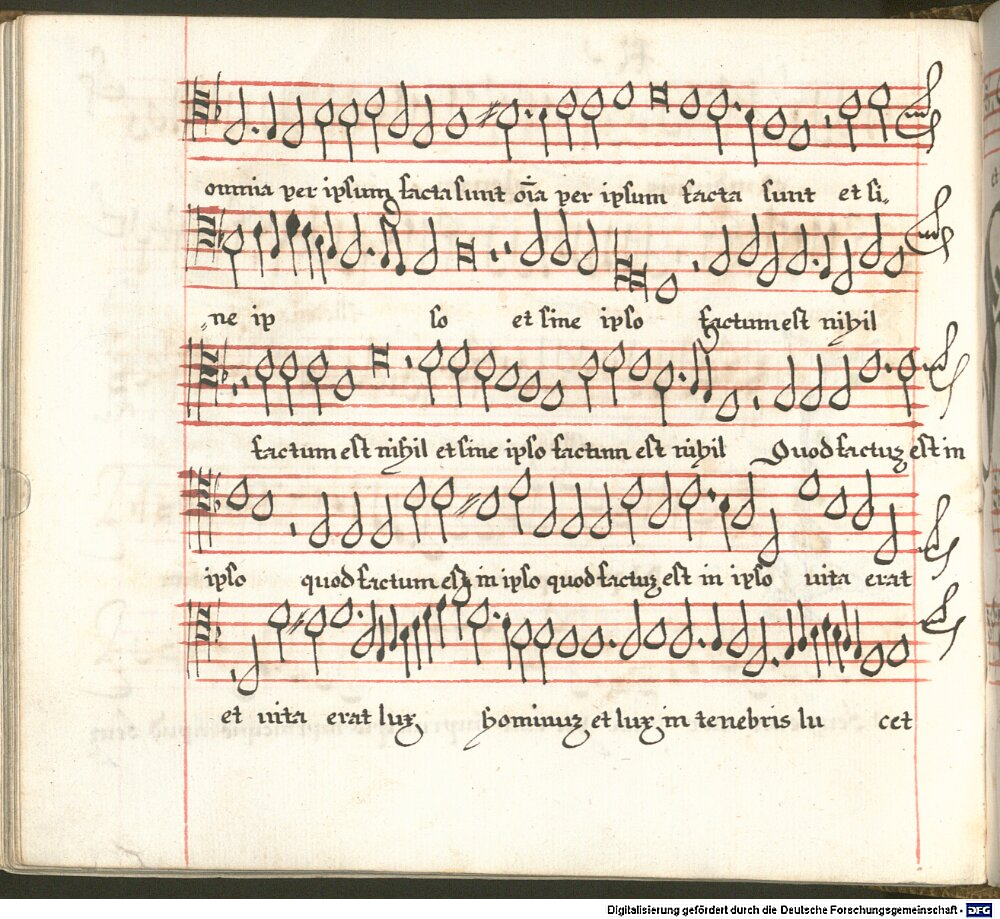 omnia per ipsum facta sunt oīa per ipsum facta sunt et si„
„ne ip so et sine ipso factum est nihil
factum est nihil et sine ipso factum est nihil Quod factuz est in
ipso quod factum est in ipso quod factuz est in ipso uita erat
et uita erat lux hominuz et lux in tenebris lu cet
Digitalisierung gefördert durch die Deutsche Forschungsgemeinschaft - DFG